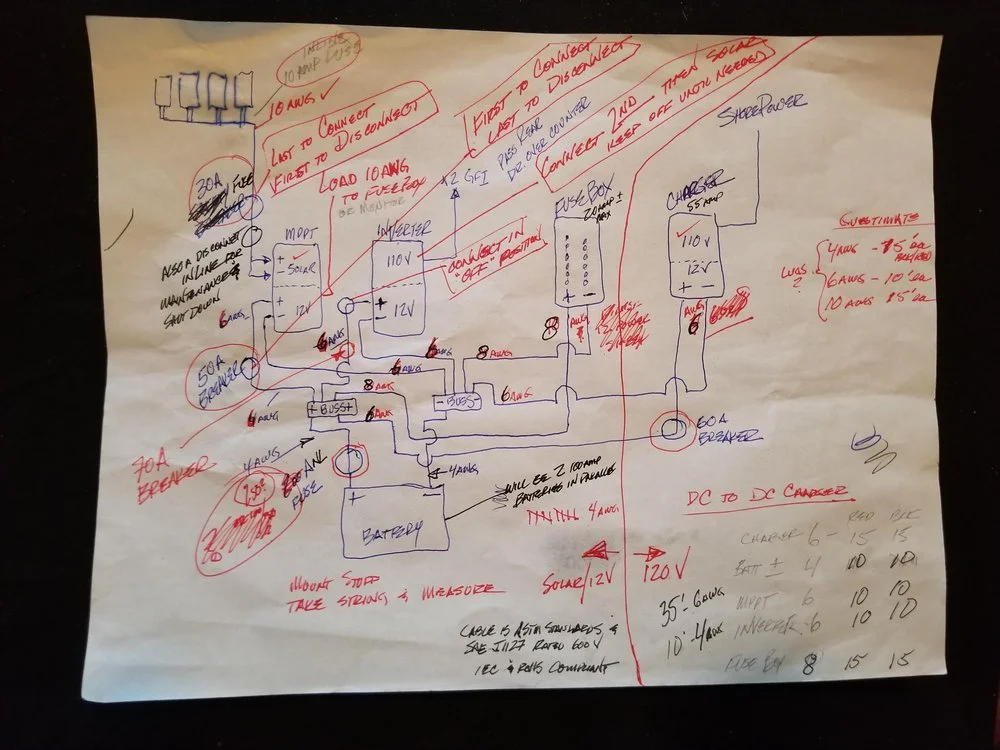 INLINE
10 AMP FUSES
10 AWG ✓
LAST TO CONNECT
FIRST TO DISCONNECT
FIRST TO CONNECT
LAST TO DISCONNECT
CONNECT 2ND - THEN SOLAR
KEEP OFF UNTIL NEEDED
SHOREPOWER
30A
FUSE
LOAD 10 AWG
TO FUSEBOX
OR MONITOR
X2 GFI
PASS REAR
DR. OVER COUNTER
ALSO A DISCONNECT
INLINE FOR
MAINTENANCE &
SHUT DOWN
MPPT
+ SOLAR
-
+
- 12V
INVERTER
110V
+
- 12V
CONNECT IN
"OFF" POSITION
FUSEBOX
20 AMP ±
MAX
+ -
CHARGER
55 AMP
110V
12V
+ -
GUESTIMATE
LUGS
?
4 AWG - 5' ea
BLK/RED
6 AWG - 10' ea
10 AWG 15' ea
6 AWG
6 AWG
8 AWG
6 AWG
50A
BREAKER
6 AWG
8 AWG
6 AWG
8 AWG
6 AWG
6 AWG
+ BUSS +
- BUSS -
60A
BREAKER
70A
BREAKER
4 AWG
ANL
FUSE
4 AWG
+ -
BATTERY
WILL BE 2 100 AMP
BATTERIES IN PARALLEL
4 AWG
MOUNT STUFF
TAKE STRING & MEASURE
SOLAR/12V
120V
CABLE IS ASTM STANDARDS &
SAE J1127 RATED 600V
IEC & ROHS COMPLIANT
DC TO DC CHARGER
RED BLK
CHARGER 6 - 15 15
BATT ± 4 10 10
35'- 6 AWG
MPPT 6 10 10
10'- 4 AWG
INVERTER - 6 10 10
FUSE BOX 8 15 15